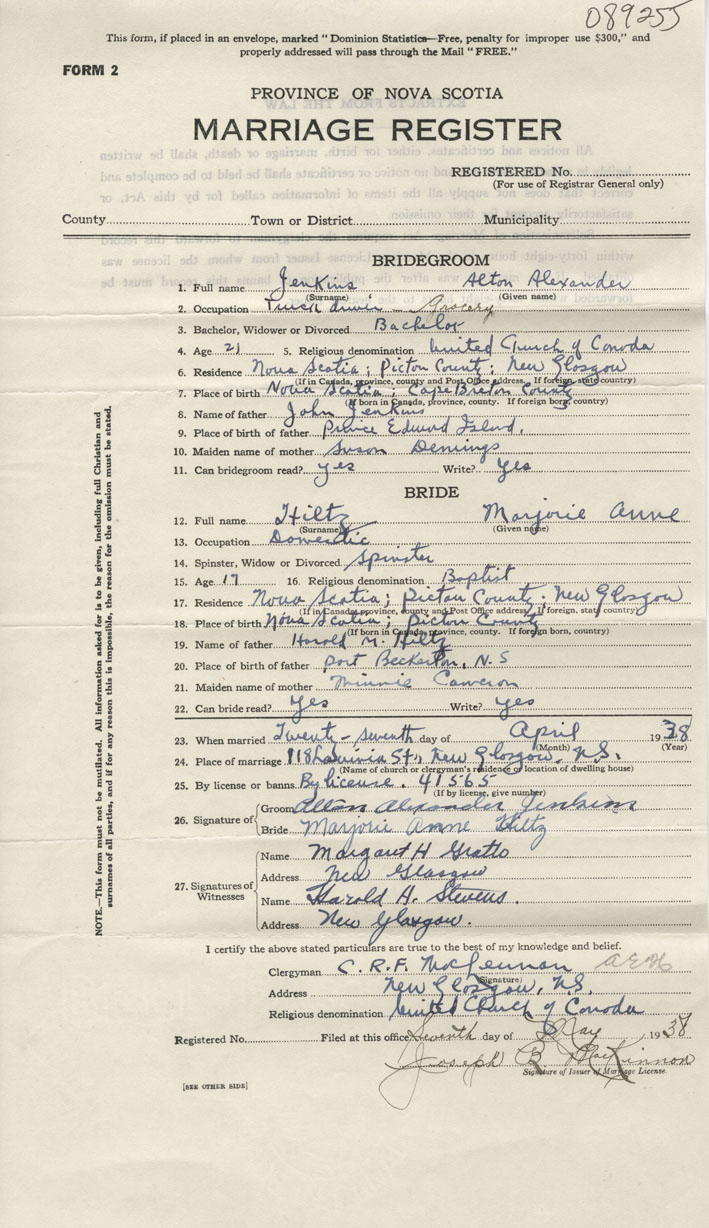 089255
This form, if placed in an envelope, marked "Dominion Statistics—Free, penalty for improper use $300," and
properly addressed will pass through the Mail "FREE."
FORM 2
PROVINCE OF NOVA SCOTIA
MARRIAGE REGISTER
REGISTERED No.
(For use of Registrar General only)
County Town or District Municipality
BRIDEGROOM
1. Full name Jenkins Alton Alexander
(Surname) (Given name)
2. Occupation Truck driver — Grocery
3. Bachelor, Widower or Divorced Bachelor
4. Age 21 5. Religious denomination United Church of Canada
6. Residence Nova Scotia; Pictou County; New Glasgow
(If in Canada, province, county and Post Office address. If foreign, state country)
7. Place of birth Nova Scotia; Cape Breton County
(If born in Canada, province, county. If foreign born, country)
8. Name of father John Jenkins
9. Place of birth of father Prince Edward Island.
10. Maiden name of mother Susan Demings
11. Can bridegroom read? yes Write? yes
BRIDE
12. Full name Hiltz Marjorie Anne
(Surname) (Given name)
13. Occupation Domestic
14. Spinster, Widow or Divorced Spinster
15. Age 17 16. Religious denomination Baptist
17. Residence Nova Scotia; Pictou County; New Glasgow
(If in Canada, province, county and Post Office address. If foreign, state country)
18. Place of birth Nova Scotia; Pictou County
(If born in Canada, province, county. If foreign born, country)
19. Name of father Harold M. Hiltz
20. Place of birth of father Port Beckerton, N.S
21. Maiden name of mother Minnie Cameron
22. Can bride read? Yes Write? yes
23. When married Twenty-seventh day of April 1938
(Month) (Year)
24. Place of marriage 118 St., New Glasgow, N.S.
(Name of church or clergyman's residence or location of dwelling house)
25. By license or banns By license. 41565
(If by license, give number)
26. Signature of Groom Alton Alexander Jenkins
Bride Marjorie Anne Hiltz
27. Signatures of Witnesses
Name Margaret H Gratto
Address New Glasgow
Name Harold H. Stevens.
Address New Glasgow.
I certify the above stated particulars are true to the best of my knowledge and belief.
Clergyman C. R. F. McLennan
(Signature)
Address New Glasgow, N.S.
Religious denomination United Church of Canada
Registered No. Filed at this office Seventh day of May 1938
Joseph B. MacKinnon
Signature of Issuer of Marriage License.
[SEE OTHER SIDE]
NOTE.—This form must not be mutilated. All information asked for is to be given, including full Christian and
surnames of all parties, and if for any reason this is impossible, the reason for the omission must be stated.